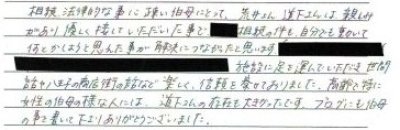 相続、法律的な事に疎い伯母にとって、荒井さん、道下さんは親しみ
があり優しく接していただいた事で 相続の件も、自分とも重ねて
何とかしようと思えた事が解決につながったと思います
施設に足を運んでいただき世間
話や八王子の商店街の話など楽しく、信頼を寄せておりました。高齢で特に
女性の伯母の様な人には、道下さんの存在も大きかったです。ブログにも伯母
の事を書いて下さりありがとうございました。